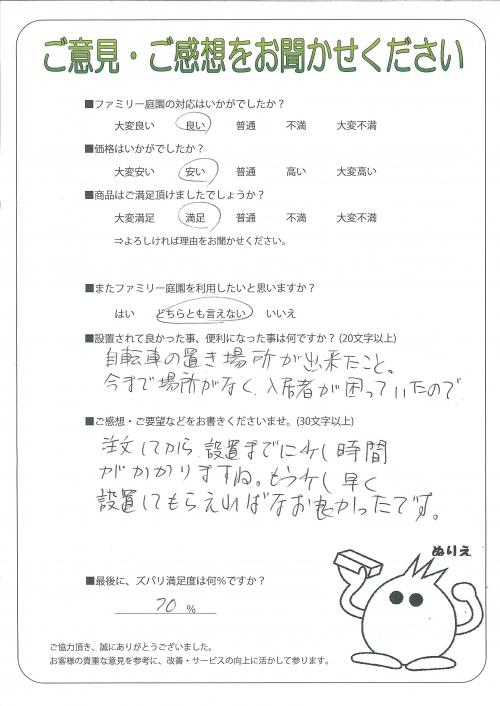 ご意見・ご感想をお聞かせください
■ファミリー庭園の対応はいかがでしたか？
大変良い 良い 普通 不満 大変不満
■価格はいかがでしたか？
大変安い 安い 普通 高い 大変高い
■商品はご満足頂けましたでしょうか？
大変満足 満足 普通 不満 大変不満
⇒よろしければ理由をお聞かせください。
■またファミリー庭園を利用したいと思いますか？
はい どちらとも言えない いいえ
■設置されて良かった事、便利になった事は何ですか？(20文字以上)
自転車の置き場所が出来たこと。
今まで場所がなく、入居者が困っていたので
■ご感想・ご要望などをお書きくださいませ。(30文字以上)
注文してから、設置までに少し時間
がかかりますね。もう少し早く
設置してもらえればなお良かったです。
ぬりえ
■最後に、ズバリ満足度は何％ですか？
70 ％
ご協力頂き、誠にありがとうございました。
お客様の貴重な意見を参考に、改善・サービスの向上に活かして参ります。